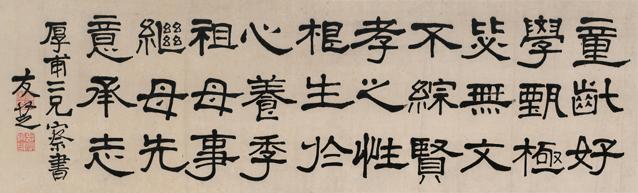 童齔好
學甄極
毖無文
不綜賢
孝之性
根生於
心養季
祖母事
繼母先
意承志
厚甫二兄察書
友芝